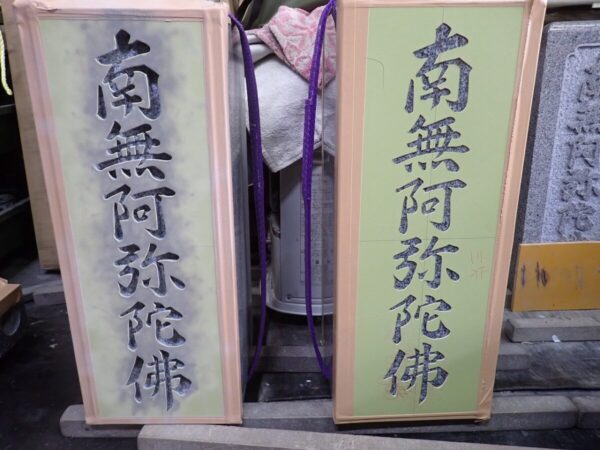 南無阿弥陀佛
南無阿弥陀佛
南無阿弥陀